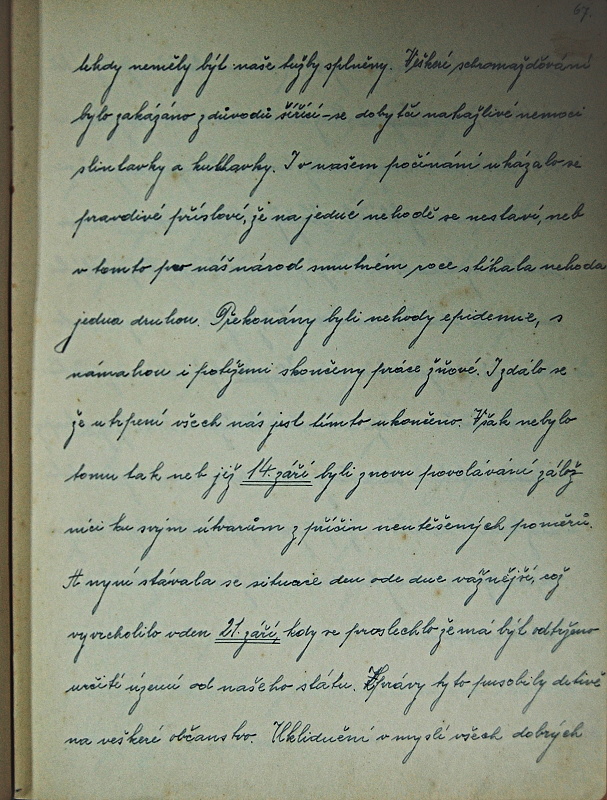 67.
tehdy neměly být naše tužby splněny. Veškeré schromažďování
bylo zakázáno z důvodů šířící-se dobytčí nakažlivé nemoci
slintavky a kulhavky. I v našem počínání ukázalo se
pravdivé přísloví, že na jedné nehodě se nestaví, neb
v tomto pro náš národ smutném roce stíhala nehoda
jedna druhou. Překonány byli nehody epidemie, s
námahou i potížemi skončeny práce žňové. I zdálo se
že utrpení všech nás jest tímto ukončeno. Však nebylo
tomu tak neb již 14. září byli znovu povoláváni zálož-
níci ku svým útvarům z příčin neutěšených poměrů.
A nyní stávala se situace den ode dne vážnější, což
vyvrcholilo v den 21. září, kdy se proslechlo že má být odtrženo
určité území od našeho státu. Zprávy tyto pusobily
na veškeré občanstvo. Uklidnění v myslí všech dobrých